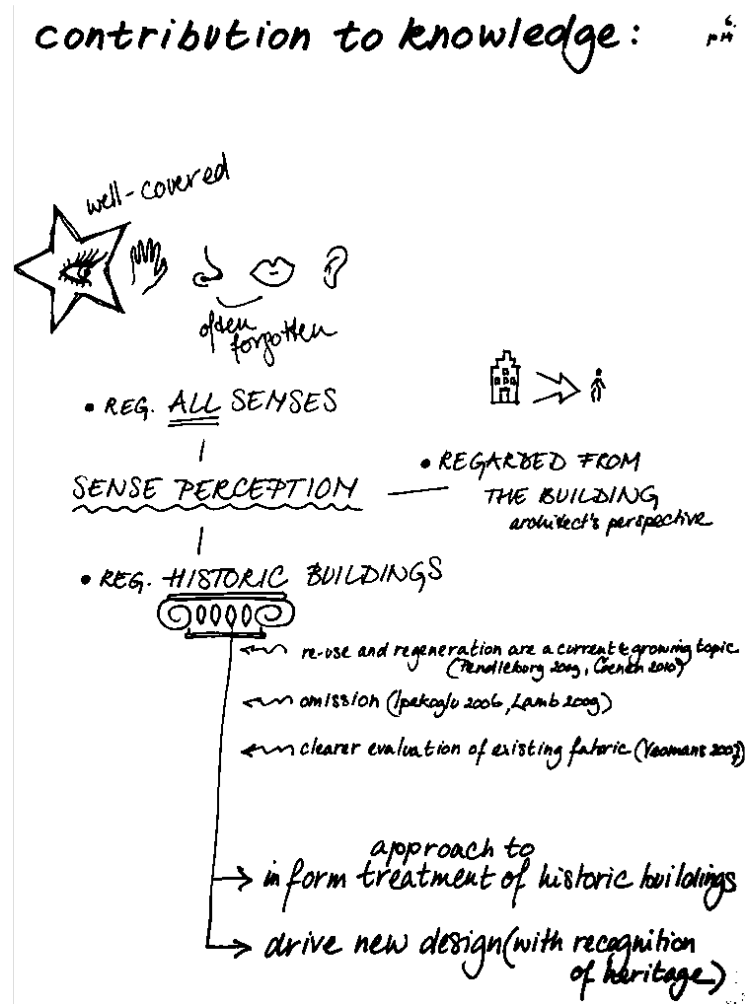 contribution to knowledge:
well-covered
often
forgotten
• REG. ALL SENSES
SENSE PERCEPTION
• REGARDED FROM
THE BUILDING
architect's perspective
• REG. HISTORIC BUILDINGS
re-use and regeneration are a current & growing topic
(Pendlebury 2009, 2010)
omission (Ipekoglu 2006, Lamb 2009)
clearer evaluation of existing fabric (Yeomans
approach to
inform treatment of historic buildings
drive new design (with recognition
of heritage)